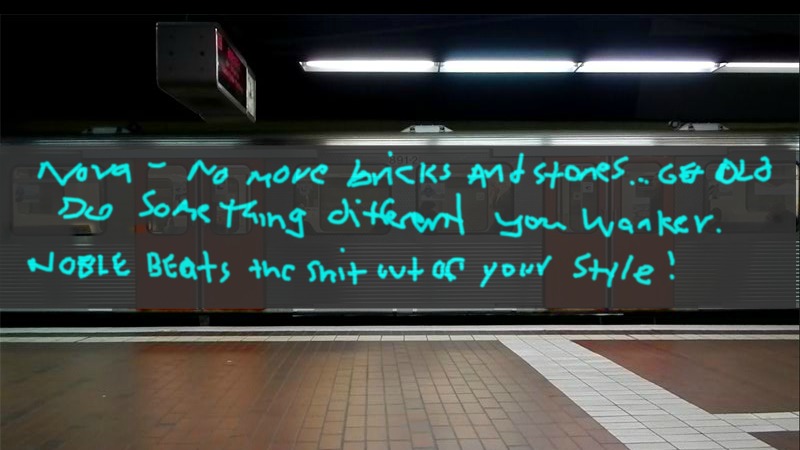 Nova - No more bricks And stones... GET OLD
Do Something different you Wanker.
NOBLE BEats the shit out of your Style!